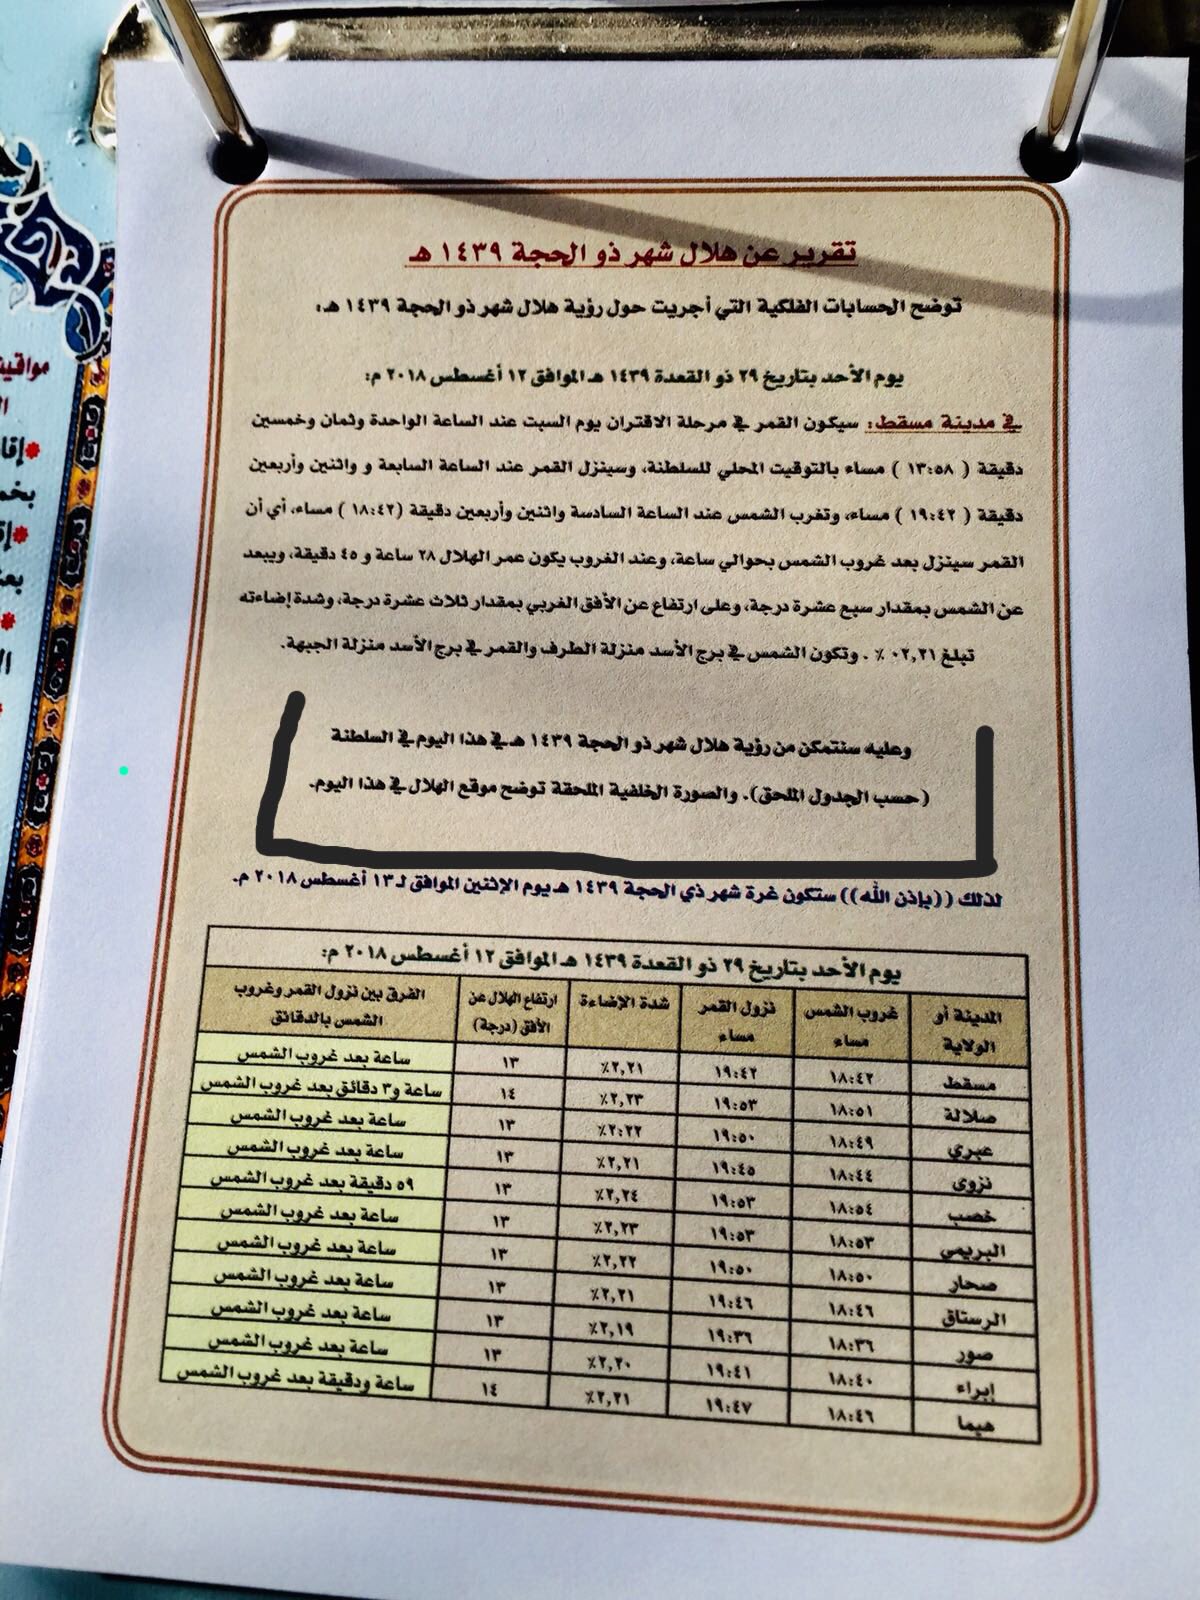 تقرير عن هلال شهر ذو الحجة ١٤٣٩ هـ
توضح الحسابات الفلكية التي أجريت حول رؤية هلال شهر ذو الحجة ١٤٣٩ هـ:
يوم الأحد بتاريخ ٢٩ ذو القعدة ١٤٣٩ هـ الموافق ١٢ أغسطس ٢٠١٨ م:
في مدينة مسقط: سيكون القمر في مرحلة الاقتران يوم السبت عند الساعة الواحدة وثمان وخمسين
دقيقة ( ١٣:٥٨ ) مساء بالتوقيت المحلي للسلطنة، وسينزل القمر عند الساعة السابعة و واثنين وأربعين
دقيقة ( ١٩:٤٢ ) مساء، وتغرب الشمس عند الساعة السادسة واثنين وأربعين دقيقة (١٨:٤٢ ) مساء، أي أن
القمر سينزل بعد غروب الشمس بحوالي ساعة، وعند الغروب يكون عمر الهلال ٢٨ ساعة و ٤٥ دقيقة، ويبعد
عن الشمس بمقدار سبع عشرة درجة، وعلى ارتفاع عن الأفق الغربي بمقدار ثلاث عشرة درجة، وشدة إضاءته
تبلغ ٠٢,٢١ ٪ . وتكون الشمس في برج الأسد منزلة الطرف والقمر في برج الأسد منزلة الجبهة.
وعليه سنتمكن من رؤية هلال شهر ذو الحجة ١٤٣٩ هـ في هذا اليوم في السلطنة
(حسب الجدول الملحق). والصورة الخلفية الملحقة توضح موقع الهلال في هذا اليوم.
لذلك ((بإذن الله)) ستكون غرة شهر ذي الحجة ١٤٣٩ هـ يوم الإثنين الموافق لـ ١٣ أغسطس ٢٠١٨ م.
يوم الأحد بتاريخ ٢٩ ذو القعدة ١٤٣٩ هـ الموافق ١٢ أغسطس ٢٠١٨ م:
المدينة أو الولاية غروب الشمس مساء نزول القمر مساء شدة الإضاءة ارتفاع الهلال عن الأفق (درجة) الفرق بين نزول القمر وغروب الشمس بالدقائق
مسقط ١٨:٤٢ ١٩:٤٢ ٢,٢١٪ ١٣ ساعة بعد غروب الشمس
صلالة ١٨:٥١ ١٩:٥٣ ٢,٢٣٪ ١٤ ساعة و٣ دقائق بعد غروب الشمس
عبري ١٨:٤٩ ١٩:٥٠ ٢:٢٢٪ ١٣ ساعة بعد غروب الشمس
نزوى ١٨:٤٤ ١٩:٤٥ ٢,٢١٪ ١٣ ساعة بعد غروب الشمس
خصب ١٨:٥٤ ١٩:٥٣ ٢,٢٤٪ ١٣ ٥٩ دقيقة بعد غروب الشمس
البريمي ١٨:٥٣ ١٩:٥٣ ٢,٢٣٪ ١٣ ساعة بعد غروب الشمس
صحار ١٨:٥٠ ١٩:٥٠ ٢,٢٢٪ ١٣ ساعة بعد غروب الشمس
الرستاق ١٨:٤٦ ١٩:٤٦ ٢,٢١٪ ١٣ ساعة بعد غروب الشمس
صور ١٨:٣٦ ١٩:٣٦ ٢,١٩٪ ١٣ ساعة بعد غروب الشمس
إبراء ١٨:٤٠ ١٩:٤١ ٢,٢٠٪ ١٣ ساعة بعد غروب الشمس
هيما ١٨:٤٦ ١٩:٤٧ ٢,٢١٪ ١٤ ساعة ودقيقة بعد غروب الشمس